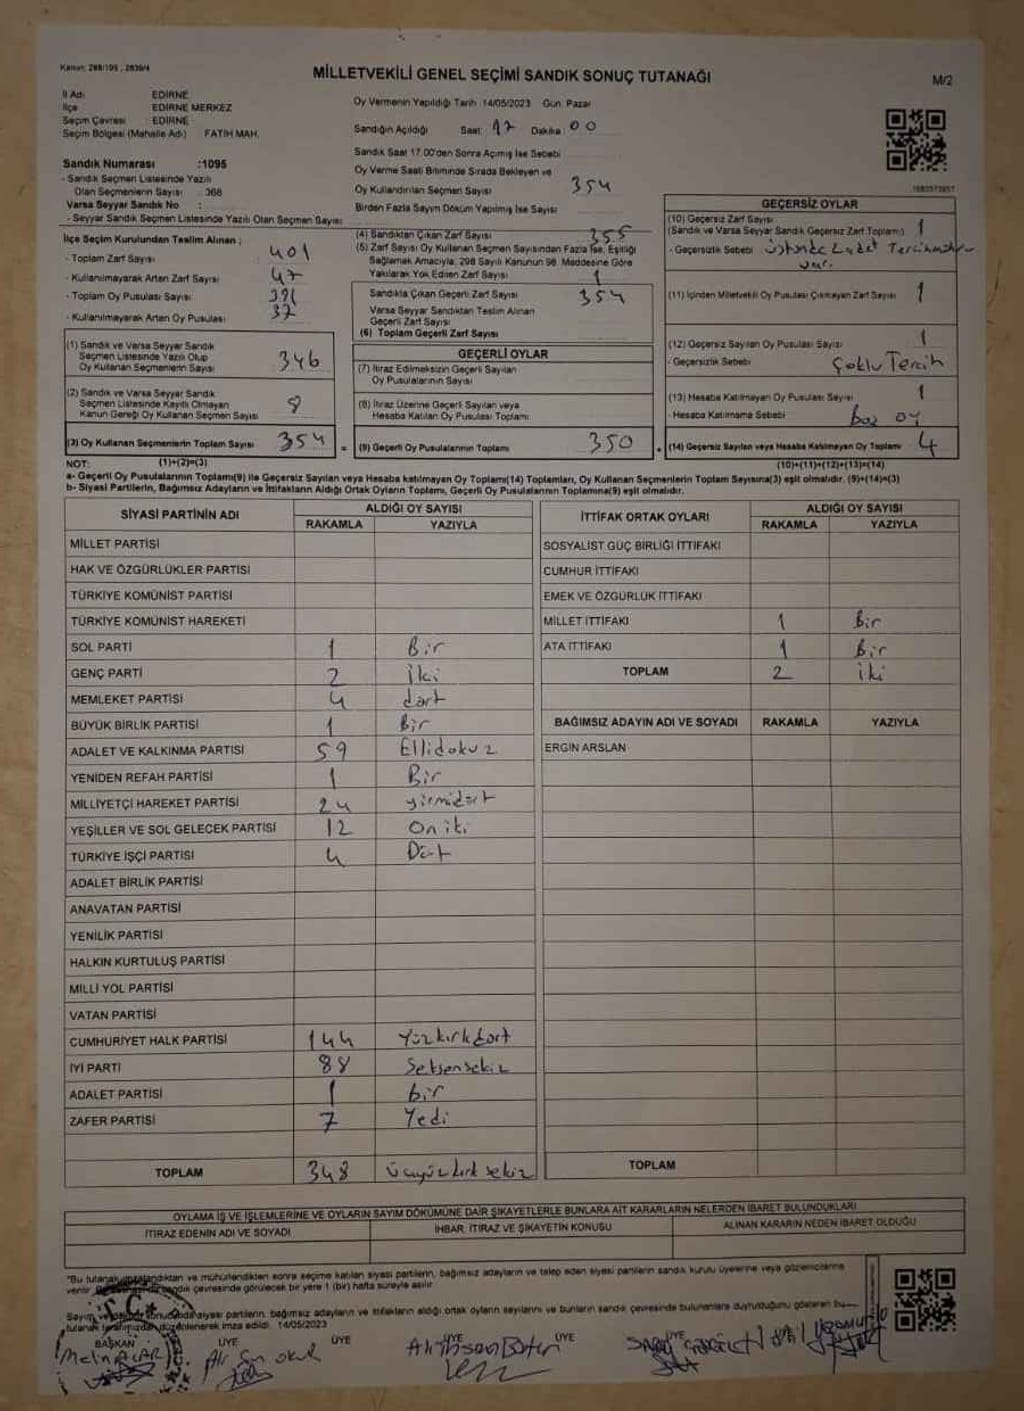 Kanun: 298/105 , 2839/4
MİLLETVEKİLİ GENEL SEÇİMİ SANDIK SONUÇ TUTANAĞI
M/2
İl Adı EDİRNE
İlçe EDİRNE MERKEZ
Seçim Çevresi EDİRNE
Seçim Bölgesi (Mahalle Adı) FATİH MAH.
Oy Vermenin Yapıldığı Tarih 14/05/2023 Gün: Pazar
Sandığın Açıldığı Saat: 17 Dakika 00
Sandık Saat 17.00'den Sonra Açılmış İse Sebebi
Oy Verme Saati Bitiminde Sırada Bekleyen ve
Oy Kullandırılan Seçmen Sayısı 354
Birden Fazla Sayım Döküm Yapılmış İse Sayısı
Sandık Numarası :1095
- Sandık Seçmen Listesinde Yazılı
Olan Seçmenlerin Sayısı : 368
Varsa Seyyar Sandık No :
- Seyyar Sandık Seçmen Listesinde Yazılı Olan Seçmen Sayısı
İlçe Seçim Kurulundan Teslim Alınan ;
- Toplam Zarf Sayısı : 401
- Kullanılmayarak Artan Zarf Sayısı : 47
- Toplam Oy Pusulası Sayısı : 391
- Kullanılmayarak Artan Oy Pusulası : 37
(1) Sandık ve Varsa Seyyar Sandık
Seçmen Listesinde Yazılı Olup
Oy Kullanan Seçmenlerin Sayısı 346
(2) Sandık ve Varsa Seyyar Sandık
Seçmen Listesinde Kayıtlı Olmayan
Kanun Gereği Oy Kullanan Seçmen Sayısı 8
(3) Oy Kullanan Seçmenlerin Toplam Sayısı 354 =
(1)+(2)=(3)
(4) Sandıktan Çıkan Zarf Sayısı 355
(5) Zarf Sayısı Oy Kullanan Seçmen Sayısından Fazla İse, Eşitliği
Sağlamak Amacıyla, 298 Sayılı Kanunun 98. Maddesine Göre
Yakılarak Yok Edilen Zarf Sayısı 1
Sandıkta Çıkan Geçerli Zarf Sayısı 354
Varsa Seyyar Sandıktan Teslim Alınan
Geçerli Zarf Sayısı
(6) Toplam Geçerli Zarf Sayısı
GEÇERLİ OYLAR
(7) İtiraz Edilmeksizin Geçerli Sayılan
Oy Pusulalarının Sayısı
(8) İtiraz Üzerine Geçerli Sayılan veya
Hesaba Katılan Oy Pusulası Toplamı
(9) Geçerli Oy Pusulalarının Toplamı 350
GEÇERSİZ OYLAR
(10) Geçersiz Zarf Sayısı
(Sandık ve Varsa Seyyar Sandık Geçersiz Zarf Toplamı) 1
- Geçersizlik Sebebi
var.
(11) İçinden Milletvekili Oy Pusulası Çıkmayan Zarf Sayısı 1
(12) Geçersiz Sayılan Oy Pusulası Sayısı 1
- Geçersizlik Sebebi Çoklu Tercih
(13) Hesaba Katılmayan Oy Pusulası Sayısı 1
- Hesaba Katılmama Sebebi Boş oy
(14) Geçersiz Sayılan veya Hesaba Katılmayan Oy Toplamı 4
(10)+(11)+(12)+(13)=(14)
NOT:
a- Geçerli Oy Pusulalarının Toplamı(9) ile Geçersiz Sayılan veya Hesaba katılmayan Oy Toplamı(14) Toplamları, Oy Kullanan Seçmenlerin Toplam Sayısına(3) eşit olmalıdır. (9)+(14)=(3)
b- Siyasi Partilerin, Bağımsız Adayların ve İttifakların Aldığı Ortak Oyların Toplamı, Geçerli Oy Pusulalarının Toplamına(9) eşit olmalıdır.
SİYASİ PARTİNİN ADI ALDIĞI OY SAYISI
RAKAMLA YAZIYLA
MİLLET PARTİSİ
HAK VE ÖZGÜRLÜKLER PARTİSİ
TÜRKİYE KOMÜNİST PARTİSİ
TÜRKİYE KOMÜNİST HAREKETİ
SOL PARTİ 1 Bir
GENÇ PARTİ 2 İki
MEMLEKET PARTİSİ 4 dört
BÜYÜK BİRLİK PARTİSİ 1 Bir
ADALET VE KALKINMA PARTİSİ 59 Ellidokuz
YENİDEN REFAH PARTİSİ 1 Bir
MİLLİYETÇİ HAREKET PARTİSİ 24 yirmidört
YEŞİLLER VE SOL GELECEK PARTİSİ 12 Oniki
TÜRKİYE İŞÇİ PARTİSİ 4 Dört
ADALET BİRLİK PARTİSİ
ANAVATAN PARTİSİ
YENİLİK PARTİSİ
HALKIN KURTULUŞ PARTİSİ
MİLLİ YOL PARTİSİ
VATAN PARTİSİ
CUMHURİYET HALK PARTİSİ 144 Yüzkırkdört
İYİ PARTİ 88 Seksensekiz
ADALET PARTİSİ 1 bir
ZAFER PARTİSİ 7 Yedi
TOPLAM 348 üçyüzkırk sekiz
İTTİFAK ORTAK OYLARI ALDIĞI OY SAYISI
RAKAMLA YAZIYLA
SOSYALİST GÜÇ BİRLİĞİ İTTİFAKI
CUMHUR İTTİFAKI
EMEK VE ÖZGÜRLÜK İTTİFAKI
MİLLET İTTİFAKI 1 Bir
ATA İTTİFAKI 1 Bir
TOPLAM 2 iki
BAĞIMSIZ ADAYIN ADI VE SOYADI RAKAMLA YAZIYLA
ERGİN ARSLAN
TOPLAM
OYLAMA İŞ VE İŞLEMLERİNE VE OYLARIN SAYIM DÖKÜMÜNE DAİR ŞİKAYETLERLE BUNLARA AİT KARARLARIN NELERDEN İBARET BULUNDUKLARI
İTİRAZ EDENİN ADI VE SOYADI İHBAR, İTİRAZ VE ŞİKAYETİN KONUSU ALINAN KARARIN NEDEN İBARET OLDUĞU
"Bu tutanak imzalandıktan ve mühürlendikten sonra seçime katılan siyasi partilerin, bağımsız adayların ve talep eden siyasi partilerin sandık kurulu üyelerine veya gözlemcilerine
verilir. sandık çevresinde görülecek bir yere 1 (bir) hafta süreyle asılır.
Sayım siyasi partilerin, bağımsız adayların ve ittifakların aldığı ortak oyların sayılarını ve bunların sandık çevresinde bulunanlara duyrulduğunu gösteren bu
tutanak düzenlenerek imza edildi. 14/05/2023
BAŞKAN ÜYE ÜYE ÜYE ÜYE ÜYE